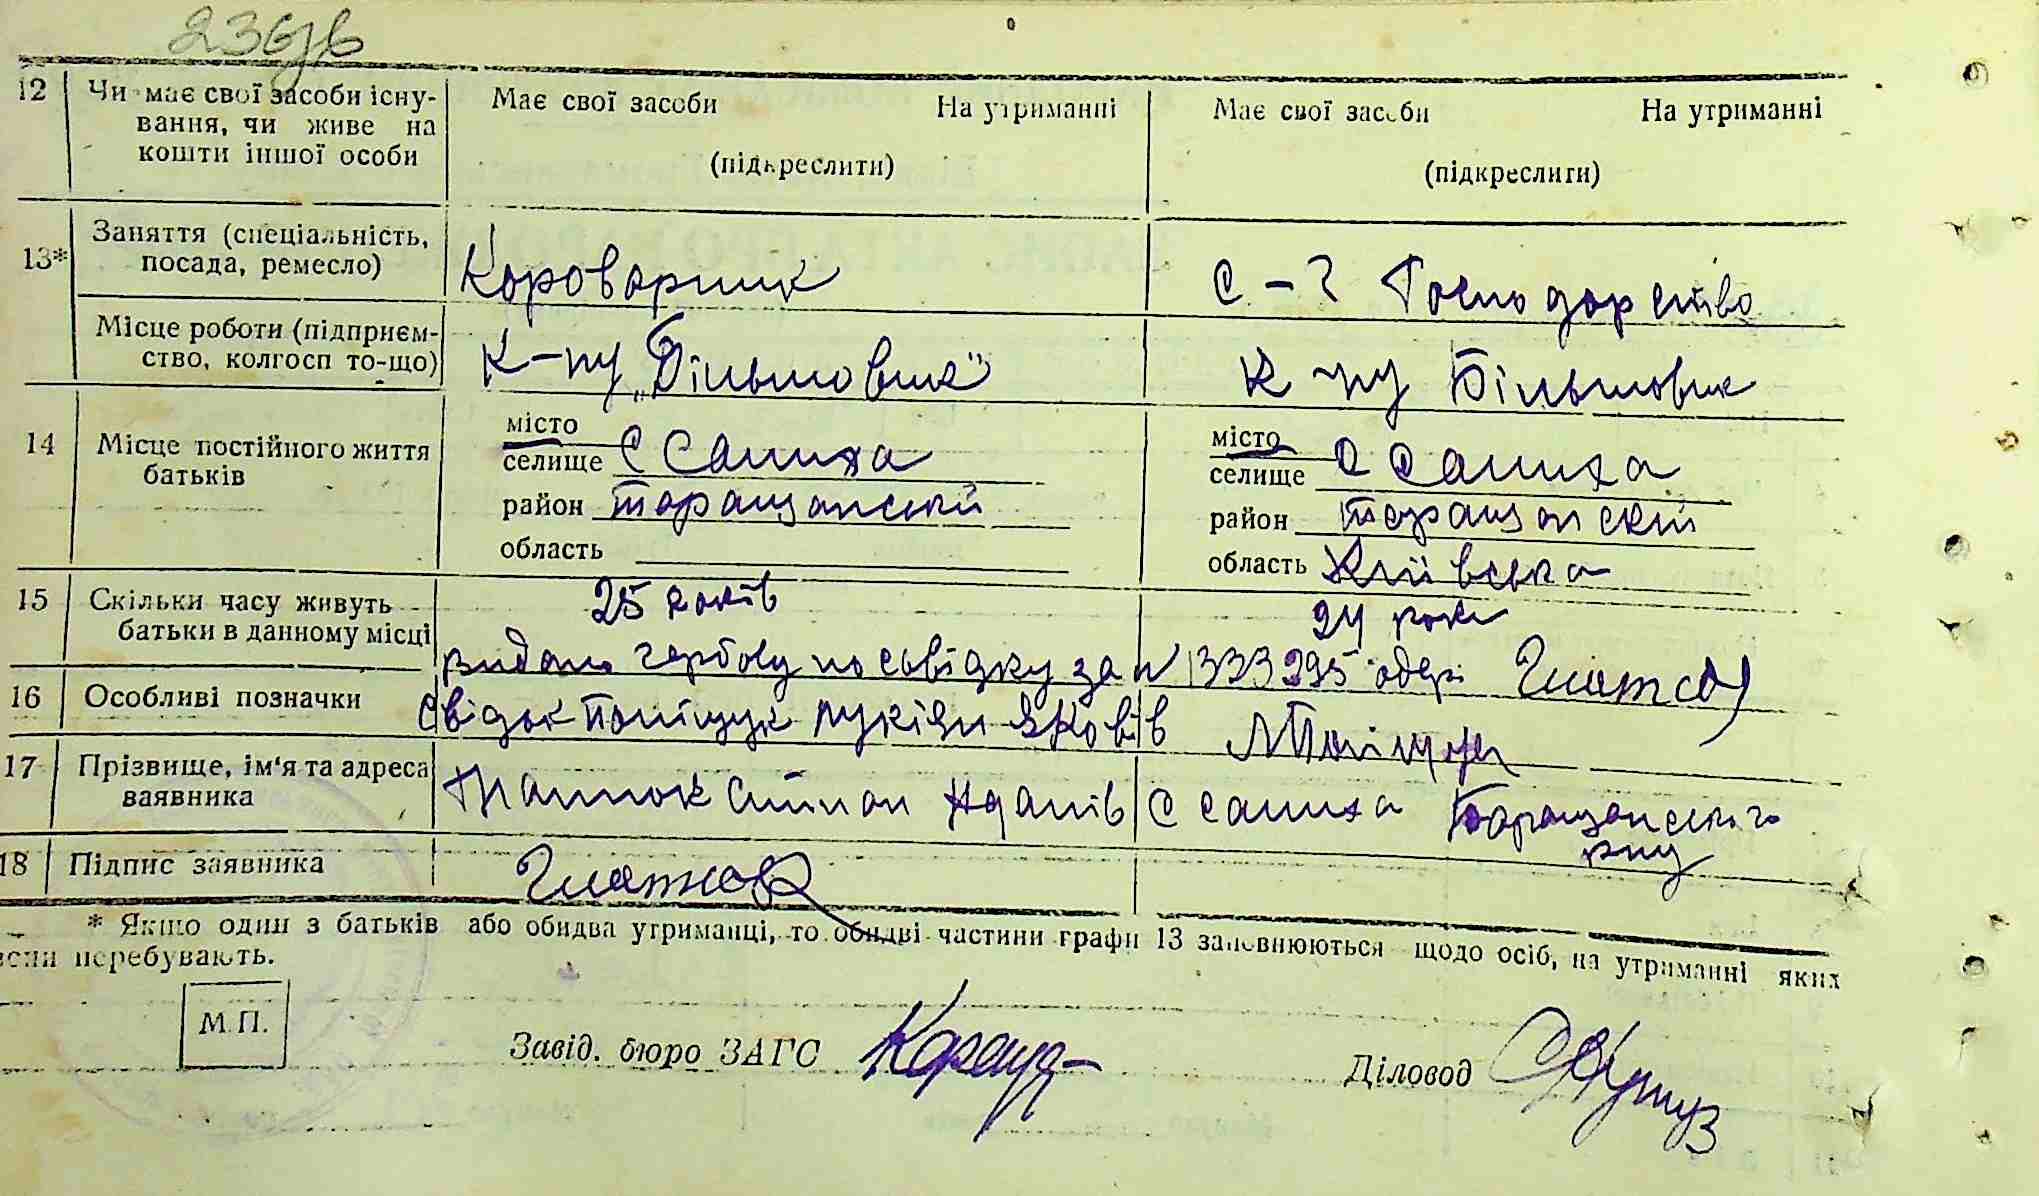 12 Чи має свої засоби існу- Має свої засоби На утриманні Має свої засоби На утриманні
вання, чи живе на
кошти іншої особи (підкреслити) (підкреслити)
13* Заняття (спеціальність,
посада, ремесло) Короварник С-г Господарство
Місце роботи (підприєм-
ство, колгосп то-що) К-пу „Більшовик" К-пу Більшовик
14 Місце постійного життя
батьків
місто місто
селище С Салиха селище С Салиха
район Таращанський район Таращанскій
область область Київська
15 Скільки часу живуть 25 років 24 роки
батьки в данному місці
видано гербову посьвідку за № 333295 одер.
16 Особливі позначки
Свідок Поліщук Лукіян Яковів Поліщук
17 Прізвище, ім'я та адреса
ваявника Степан Адамів С Салиха Таращанського
р-ну
18 Підпис заявника
* Якщо один з батьків або обидва утриманці, то обидві частини графи 13 заповнюються щодо осіб, на утриманні яких
перебувають.
М. П.
Завід. бюро ЗАГС Діловод